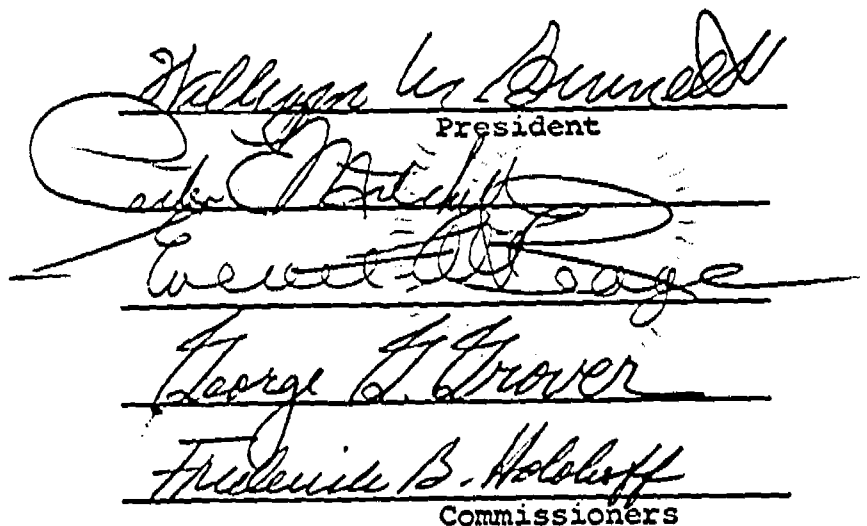 William M. Bennett
President
Peter E. Mitchell
Everett
George G. Grover
Frederick B. Holoboff
Commissioners